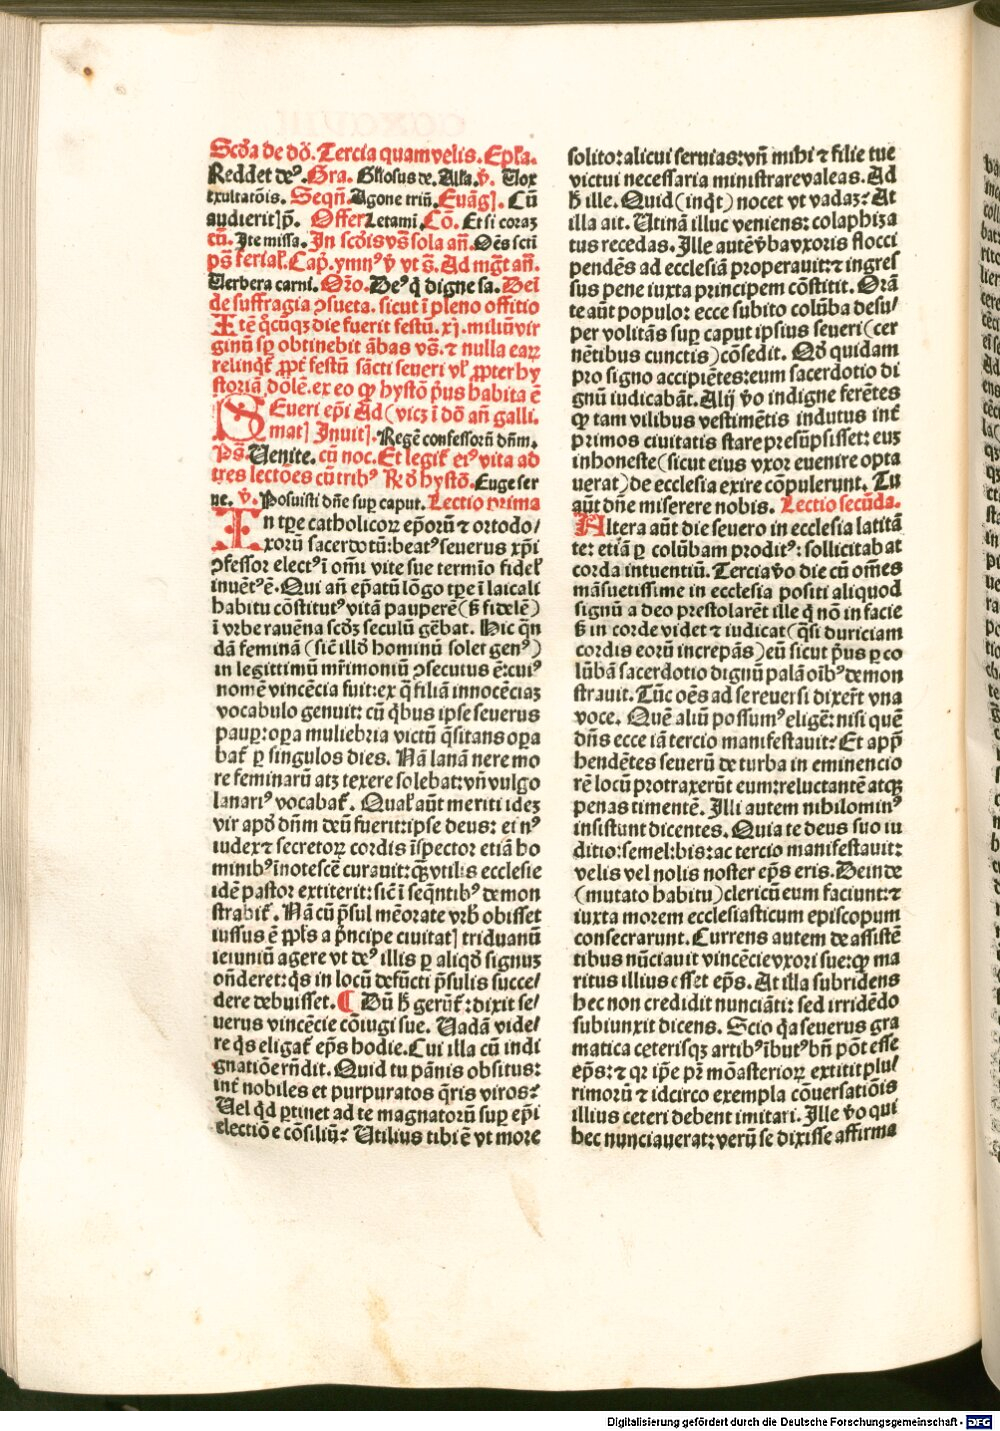 Scd̃a de dõ. Tercia quam velis. Epl̃a.
Reddet deꝰ. Gra. Gl̃iosus de. Alla. v̄. Vox
exultatõis. Seqñ. Agone triũ. Euãgĩ. Cũ
audieritĩp̃. Offer Letami. Cõ. Et si coraꝫ
cũ. Ite missa. In scd̃is vs̃ sola añ. Oẽs scti
ps̃ ferial̃. Cap̃. ymnꝰ v̄ vt s̃. Ad mg̃t añ.
Verbera carni. Oro. Deꝰ q̃ digne sa. Dei
de suffragia ꝯsueta. sicut ĩ pleno offitio
Itẽ q̃cũqꝫ die fuerit festũ. xj. miliũ vir
ginũ sꝑ obtinebit ãbas vs̃. ⁊ nulla eaꝝ
relinq̃t ꝓpt̃ festũ sãcti seueri vl̃ ꝓpter hy
storiã dõlẽ. ex eo ꝙ hystõ p̃us habita ẽ
Seueri ep̃i Ad (vicꝫ ĩ dõ añ galli.
mat) Inuit). Regẽ confessorũ dñm.
Ps̃. Venite. cũ noc. Et legit̃ eiꝰ vita ad
tres lectões cũ tribꝰ R̃ d̃ hystõ. Euge ser
ue. v̄. Posuisti dñe suꝑ caput. Lectio prima
In tꝑe catholicoꝝ ep̃orũ ⁊ ortodo/
xorũ sacerdotũ: beatꝰ seuerus xp̃i
ꝯfessor electꝰ ĩ om̃i vite sue termĩo fidel̃
inuẽtꝰ ẽ. Qui añ ep̃atũ lõgo tꝑe ĩ laicali
habitu cõstitutꝰ vitã pauperẽ (ſ̃ fidelẽ)
ĩ vrbe rauẽna scd̃ꝫ seculũ gẽbat. Hic q̃n
dã feminã (sic̃ illd̃ hominũ solet genꝰ)
in legittimũ mr̃imoniũ ꝯsecutus ẽ: cuiꝰ
nomẽ vincẽcia fuit: ex q̃ filiã innocẽciaꝫ
vocabulo genuit: cũ q̃bus ipse seuerus
pauꝑ: oꝑa muliebria victũ q̃sitans oꝑa
bat̃ ꝑ singulos dies. Nã lanã nere mo
re feminarũ atꝫ texere solebat: vñ vulgo
lanariꝰ vocabat̃. Qual̃ aũt meriti ideꝫ
vir apd̃ dñm deũ fuerit: ipse deus: ei nꝰ
iudex ⁊ secretoꝝ cordis ĩspector etiã ho
minibꝰ ĩnotescẽ curauit: q̃ꝫ vtilis ecclesie
idẽ pastor extiterit: sic̃ ĩ seq̃ntibꝰ demon
strabit̃. Nã cũ p̃sul mẽorate vrb̃ obisset
iussus ẽ ꝓpl̃s a p̃ncipe ciuitat) triduanũ
ieiuniũ agere vt deꝰ illis ꝑ aliqd̃ signuꝫ
oñderet: q̃s in locũ defũcti p̃sulis succe/
dere debuisset. ¶ Dũ h̃ gerũt̃: dixit se/
uerus vincẽcie cõiugi sue. Vadã vide/
re q̃s eligat̃ ep̃s hodie. Cui illa cũ indi
gnatiõe rñdit. Quid tu pãnis obsitus:
int̃ nobiles et purpuratos q̃ris viros?
Vel q̃d ꝑtinet ad te magnatorũ suꝑ ep̃i
electiõe cõsiliũ? Vtilius tibi ẽ vt more
solito: alicui seruias: vñ mihi ⁊ filie tue
victui necessaria ministrare valeas. Ad
h̃ ille. Quid (inq̃t) nocet vt vadaꝫ? At
illa ait. Vtinã illuc veniens: colaphiza
tus recedas. Ille autẽ v̄ba vxoris flocci
pendẽs ad ecclesiã properauit: ⁊ ingres
sus pene iuxta principem cõstitit. Orã
te aũt populo: ecce subito colũba desu/
per volitãs suꝑ caput ipsius seueri (cer
nẽtibus cunctis) cõsedit. Qd̃ quidam
pro signo accipiẽtes: eum sacerdotio di
gnũ iudicabãt. Alij v̄o indigne ferẽtes
ꝙ tam vilibus vestimẽtis indutus int̃
primos ciuitatis stare presũpsisset: euꝫ
inhoneste (sicut eius vxor euenire opta
uerat) de ecclesia exire cõpulerunt. Tu
aũt dñe miserere nobis. Lectio secũda.
Altera aũt die seuero in ecclesia latitã
te: etiã ꝑ colũbam proditꝰ: sollicitabat
corda intuentiũ. Tercia v̄o die cũ om̃es
mãsuetissime in ecclesia positi aliquod
signũ a deo prestolarẽt ille q̃ nõ in facie
ſ̃ in corde videt ⁊ iudicat (q̃si duriciam
cordis eorũ increpãs) eũ sicut p̃us ꝑ co
lũbã sacerdotio dignũ palã oĩbꝰ demon
strauit. Tũc oẽs ad se reuersi dixer̃t vna
voce. Quẽ aliũ possumꝰ eligẽ: nisi quẽ
dñs ecce iã tercio manifestauit? Et app̃
hendẽtes seuerũ de turba in eminencio
rẽ locũ protraxerũt eum: reluctantẽ atqꝫ
penas timentẽ. Illi autem nihilominꝰ
insistunt dicentes. Quia te deus suo iu
ditio: semel: bis: ac tercio manifestauit:
velis vel nolis noster ep̃s eris. Deinde
(mutato habitu) clericũ eum faciunt: ⁊
iuxta morem ecclesiasticum episcopum
consecrarunt. Currens autem de assistẽ
tibus nũciauit vincẽcie vxori sue: ꝙ ma
ritus illius esset ep̃s. At illa subridens
hec non credidit nunciãti: sed irridẽdo
subiunxit dicens. Scio q̃a seuerus gra
matica ceterisqꝫ artibꝰ ĩbutꝰ bñ põt esse
ep̃s: ⁊ qꝛ ip̃e pr̃ mõasterioꝝ extitit plu/
rimorũ ⁊ idcirco exempla cõuersatiõis
illius ceteri debent imitari. Ille v̄o qui
hec nunciauerat: verũ se dixisse affirma
Digitalisierung gefördert durch die Deutsche Forschungsgemeinschaft - DFG